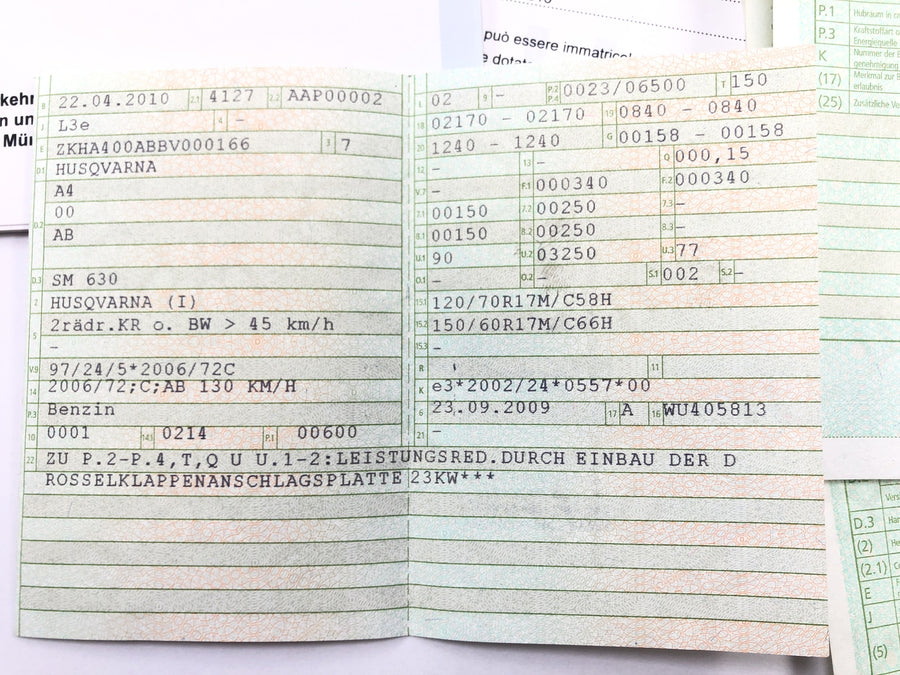 può essere immatricol
e dotat
kehr
n un
Mün
B 22.04.2010 2.1 4127 2.2 AAP00002
J L3e 4 –
E ZKHA400ABBV000166 3 7
D.1 HUSQVARNA
A4
D.2 00
AB
D.3 SM 630
2 HUSQVARNA (I)
5 2rädr.KR o. BW > 45 km/h
–
V.9 97/24/5*2006/72C
14 2006/72;C;AB 130 KM/H
P.3 Benzin
10 0001 14.1 0214 P.1 00600
L 02 9 – P.2 P.4 0023/06500 T 150
18 02170 – 02170 19 0840 – 0840
20 1240 – 1240 G 00158 – 00158
12 – 13 – Q 000,15
V.7 – F.1 000340 F.2 000340
7.1 00150 7.2 00250 7.3 –
8.1 00150 8.2 00250 8.3 –
U.1 90 U.2 03250 U.3 77
O.1 – O.2 – S.1 002 S.2 –
15.1 120/70R17M/C58H
15.2 150/60R17M/C66H
15.3 –
R 11
K e3*2002/24*0557*00
6 23.09.2009 17 A 16 WU405813
21 –
22 ZU P.2-P.4,T,Q U U.1-2:LEISTUNGSRED.DURCH EINBAU DER D
ROSSELKLAPPENANSCHLAGSPLATTE 23KW***
P.1 Hubraum in cm
P.3 Kraftstoffart o
Energiequelle
K Nummer der E
genehmigung
(17) Merkmal zur B
erlaubnis
(25) Zusätzliche Ver
Vers
D.3 Han
(2) He
(2.1) Co
E
J
(5)